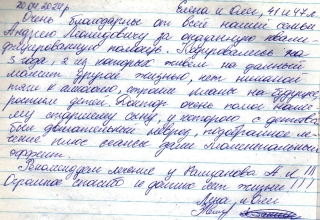 20.04.2024г. Елена и Олег, 41 и 47 л.
Очень благодарны от всей нашей семьи
Андрею Леонидовичу за оказанную нам
помощь. Кодировались на
5 года, 2 из которых живем на данный
момент другой жизнью, нет никакой
тяги к алкоголю, строим планы на будущее,
рожаем детей. Доктор очень помог наше-
му старшему сыну, у которого с детства
был двигательный невроз, подобранное ле-
чение плюс сеансы дали моментальный
эффект.
Рекомендуем лечение у А. Л. !!!
Огромное спасибо и долгих лет жизни!!!
и Олег